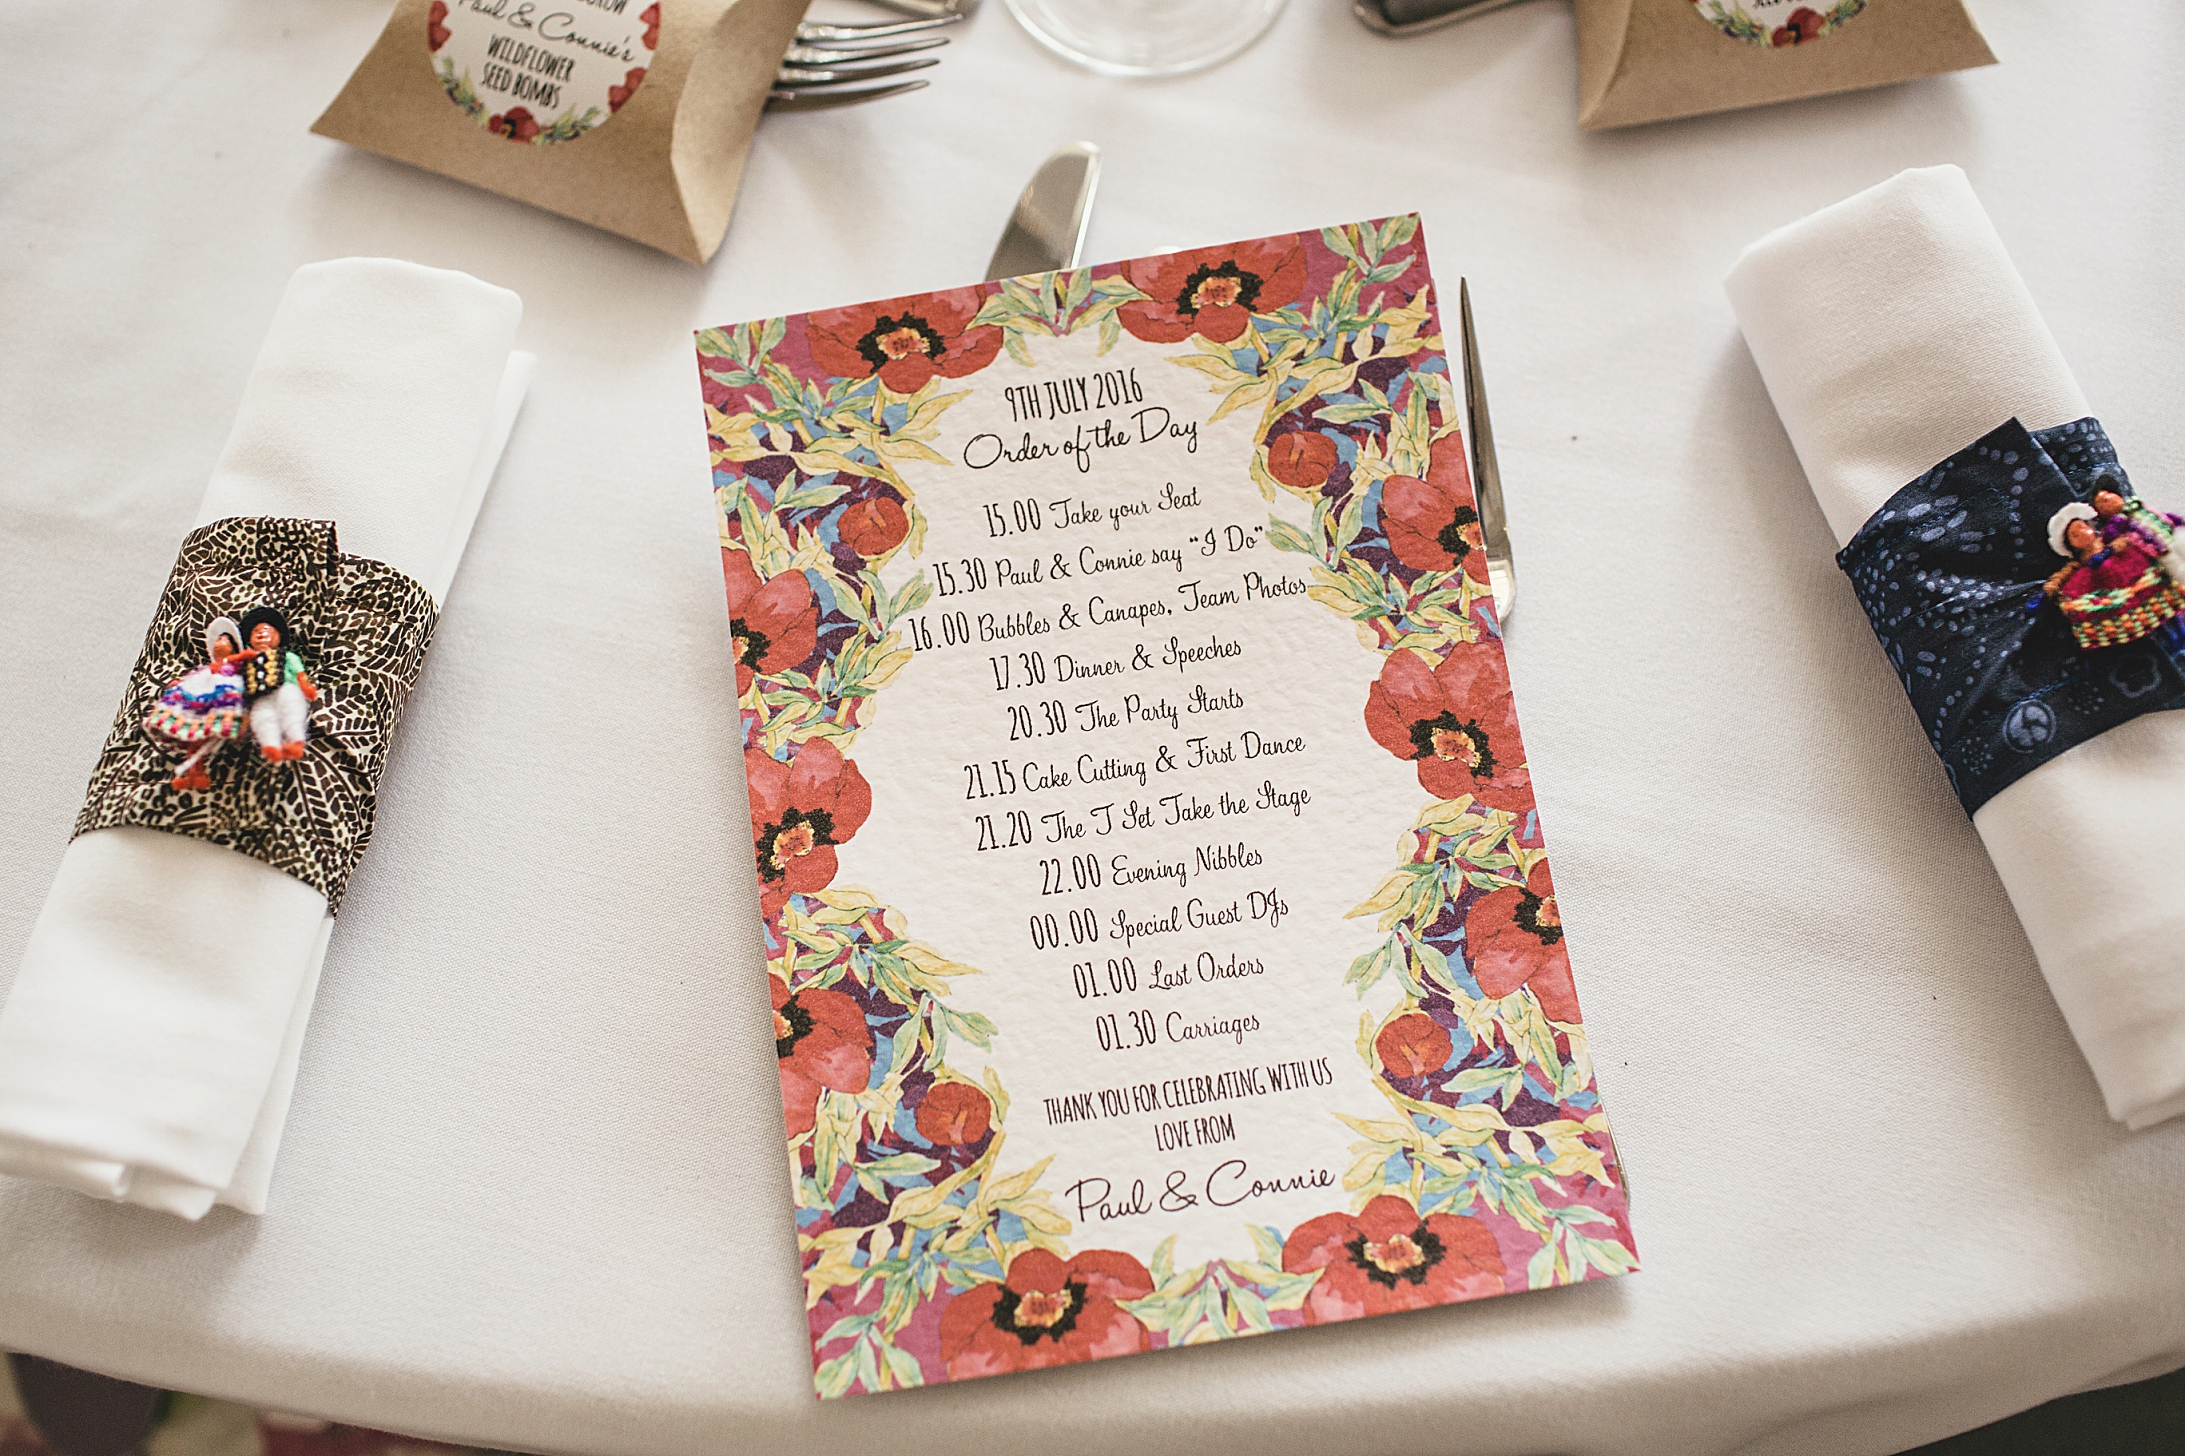 Paul & Connie's
WILDFLOWER
SEED BOMBS
9TH JULY 2016
Order of the Day
15.00 Take your Seat
15.30 Paul & Connie say "I Do"
16.00 Bubbles & Canapes, Team Photos
17.30 Dinner & Speeches
20.30 The Party Starts
21.15 Cake Cutting & First Dance
21.20 The T Set Take the Stage
22.00 Evening Nibbles
00.00 Special Guest DJs
01.00 Last Orders
01.30 Carriages
THANK YOU FOR CELEBRATING WITH US
LOVE FROM
Paul & Connie